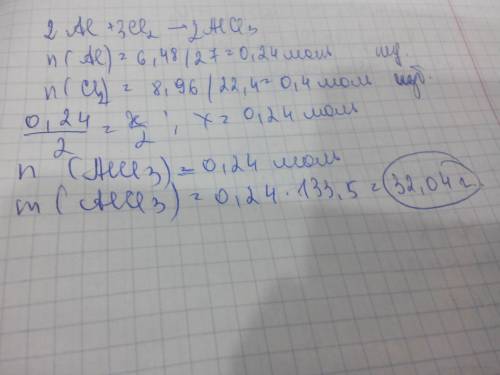 2 Al + 3Cl₂ → 2AlCl₃
n(Al) = 6,48/27 = 0,24 моль
n(Cl₂) = 8,96/22,4 = 0,4 моль изб.
0,24/2 = x/2 ; x = 0,24 моль
n (AlCl₃) = 0,24 моль
m (AlCl₃) = 0,24 · 133,5 = 32,04 г